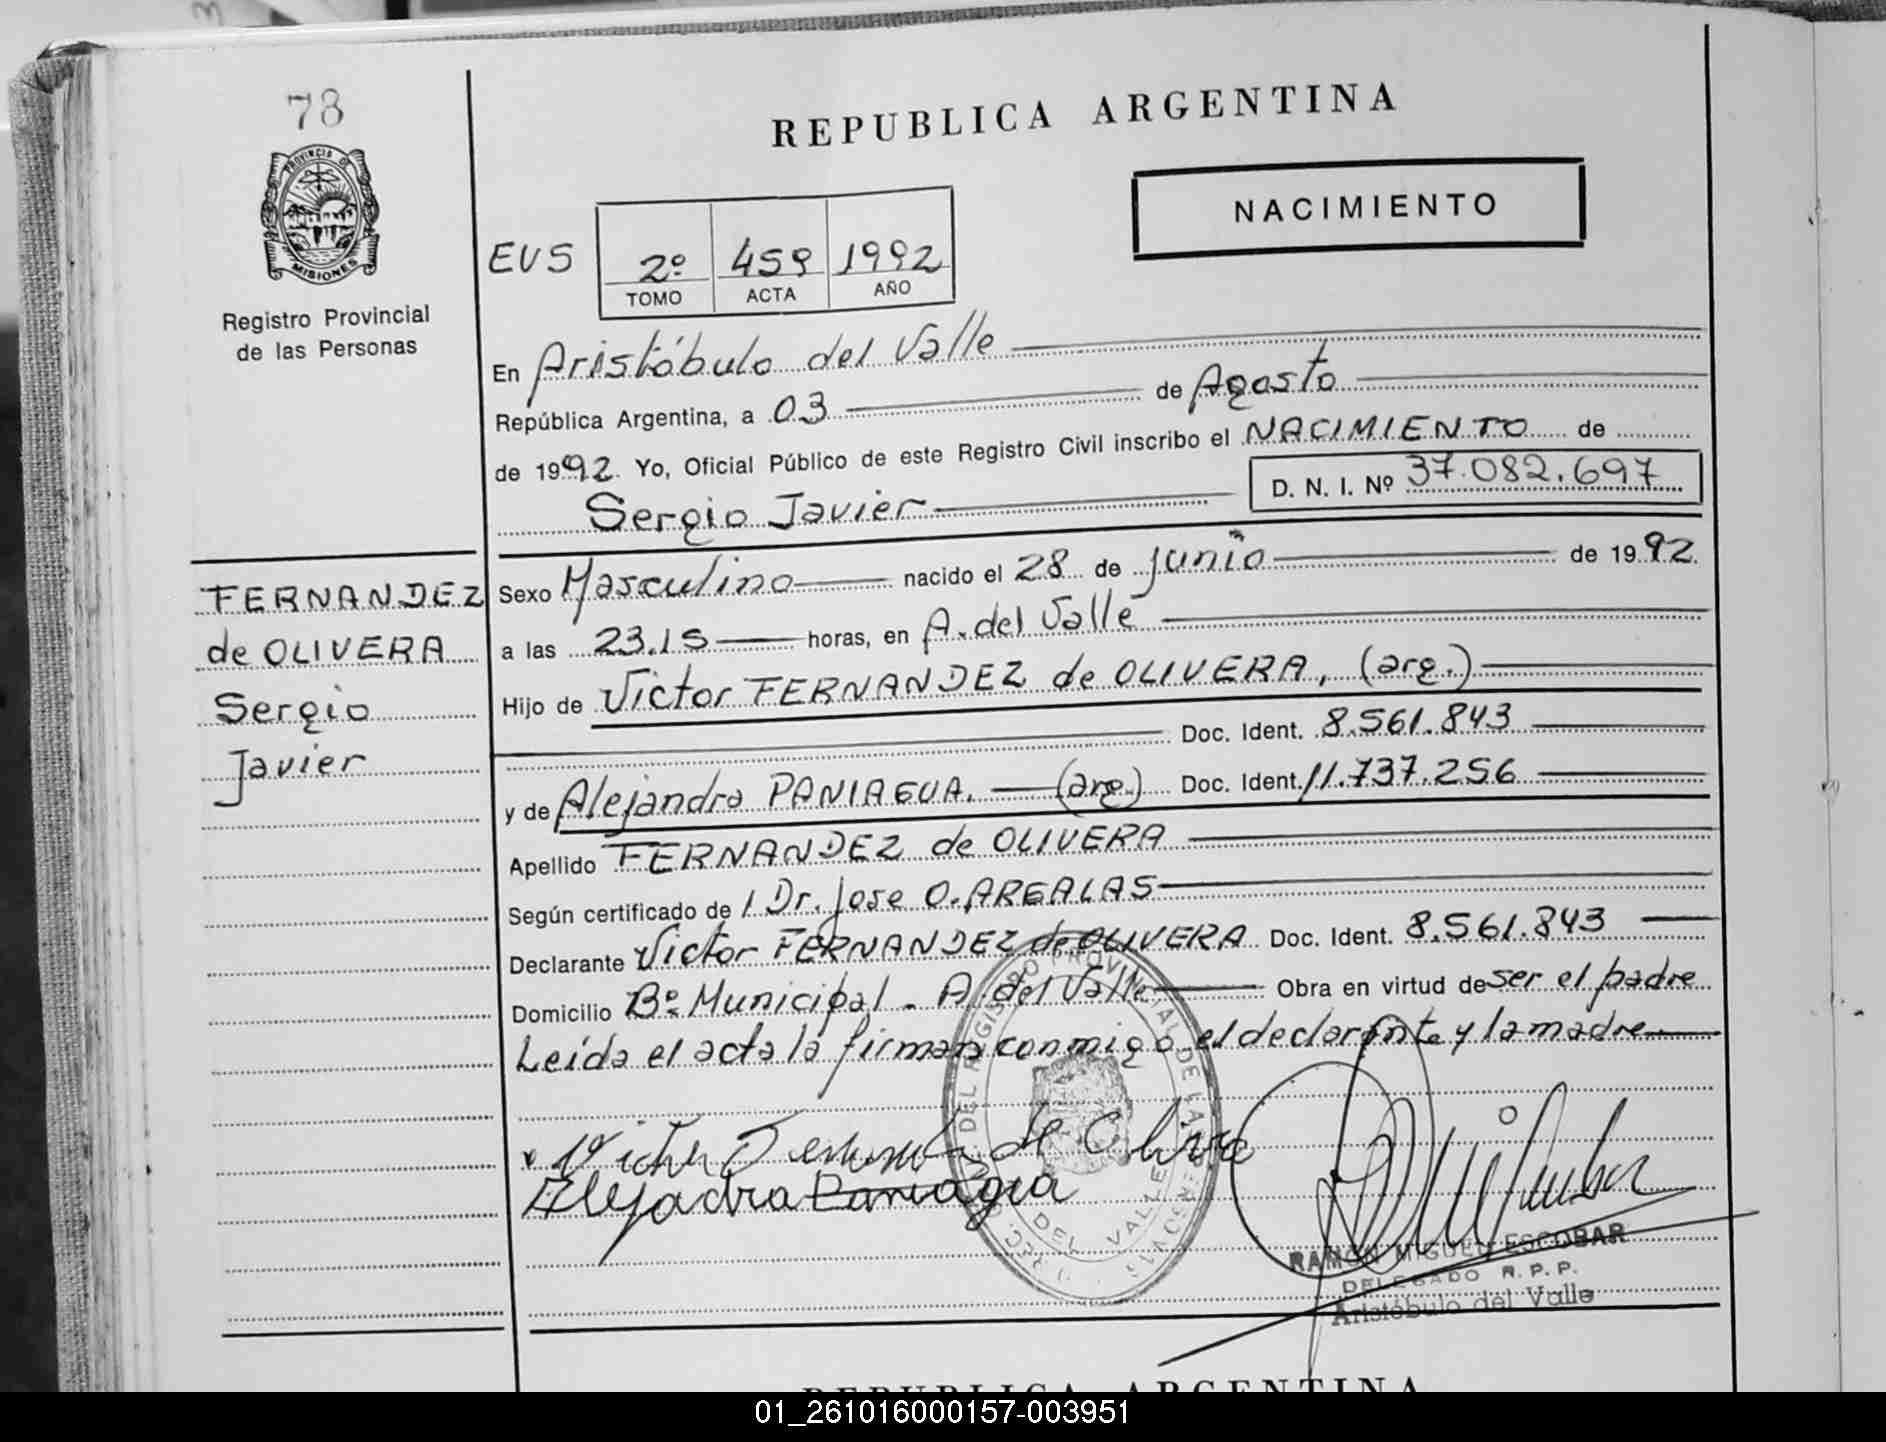 78
PROVINCIA DE
MISIONES
Registro Provincial
de las Personas
REPUBLICA ARGENTINA
NACIMIENTO
EVS 2º 459 1992
TOMO ACTA AÑO
En Aristóbulo del Valle
República Argentina, a 03 de Agosto
de 1992. Yo, Oficial Público de este Registro Civil inscribo el NACIMIENTO de
Sergio Javier D. N. I. Nº 37.082.697
FERNANDEZ
de OLIVERA
Sergio
Javier
Sexo Masculino nacido el 28 de junio de 1992.
a las 23.15 horas, en A. del Valle
Hijo de Victor FERNANDEZ de OLIVERA, (arg.)
Doc. Ident. 8.561.843
y de Alejandra PANIAGUA. (arg.) Doc. Ident. 11.737.256
Apellido FERNANDEZ de OLIVERA
Según certificado de l Dr. Jose O. ARGALAS
Declarante Victor FERNANDEZ de OLIVERA Doc. Ident. 8.561.843
Domicilio Bº Municipal - A. del Valle Obra en virtud de ser el padre
Leída el acta la firman conmigo el declarante y la madre
Alejadra Paniagua
DEL REGISTRO PROVINCIAL DE LAS PERSONAS
DEL VALLE
RAMON MIGUEL ESCOBAR
DELEGADO R.P.P.
Aristóbulo del Valle
REPUBLICA ARGENTINA
01_261016000157-003951